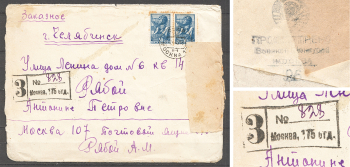 Заказное
г. Челябинск
Улица Ленина дом № 6 кв 14
Рябой
Антонине Петровне
З
№ 828
Москва, 175 отд.
Москва 107 Почтовой ящик
Рябой А. М.
ПРОСМОТРЕНО
Военной Цензурой
МОСКВА
З
№ 828
Москва, 175 отд.
Антонине